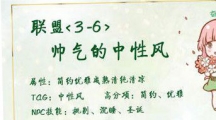 联盟<3-6>
帅气的中性风
属性：简约优雅成熟清纯清凉
TAG：中性风 高分项：简约、优雅
NPC技能：挑剔、沉睡、圣诞